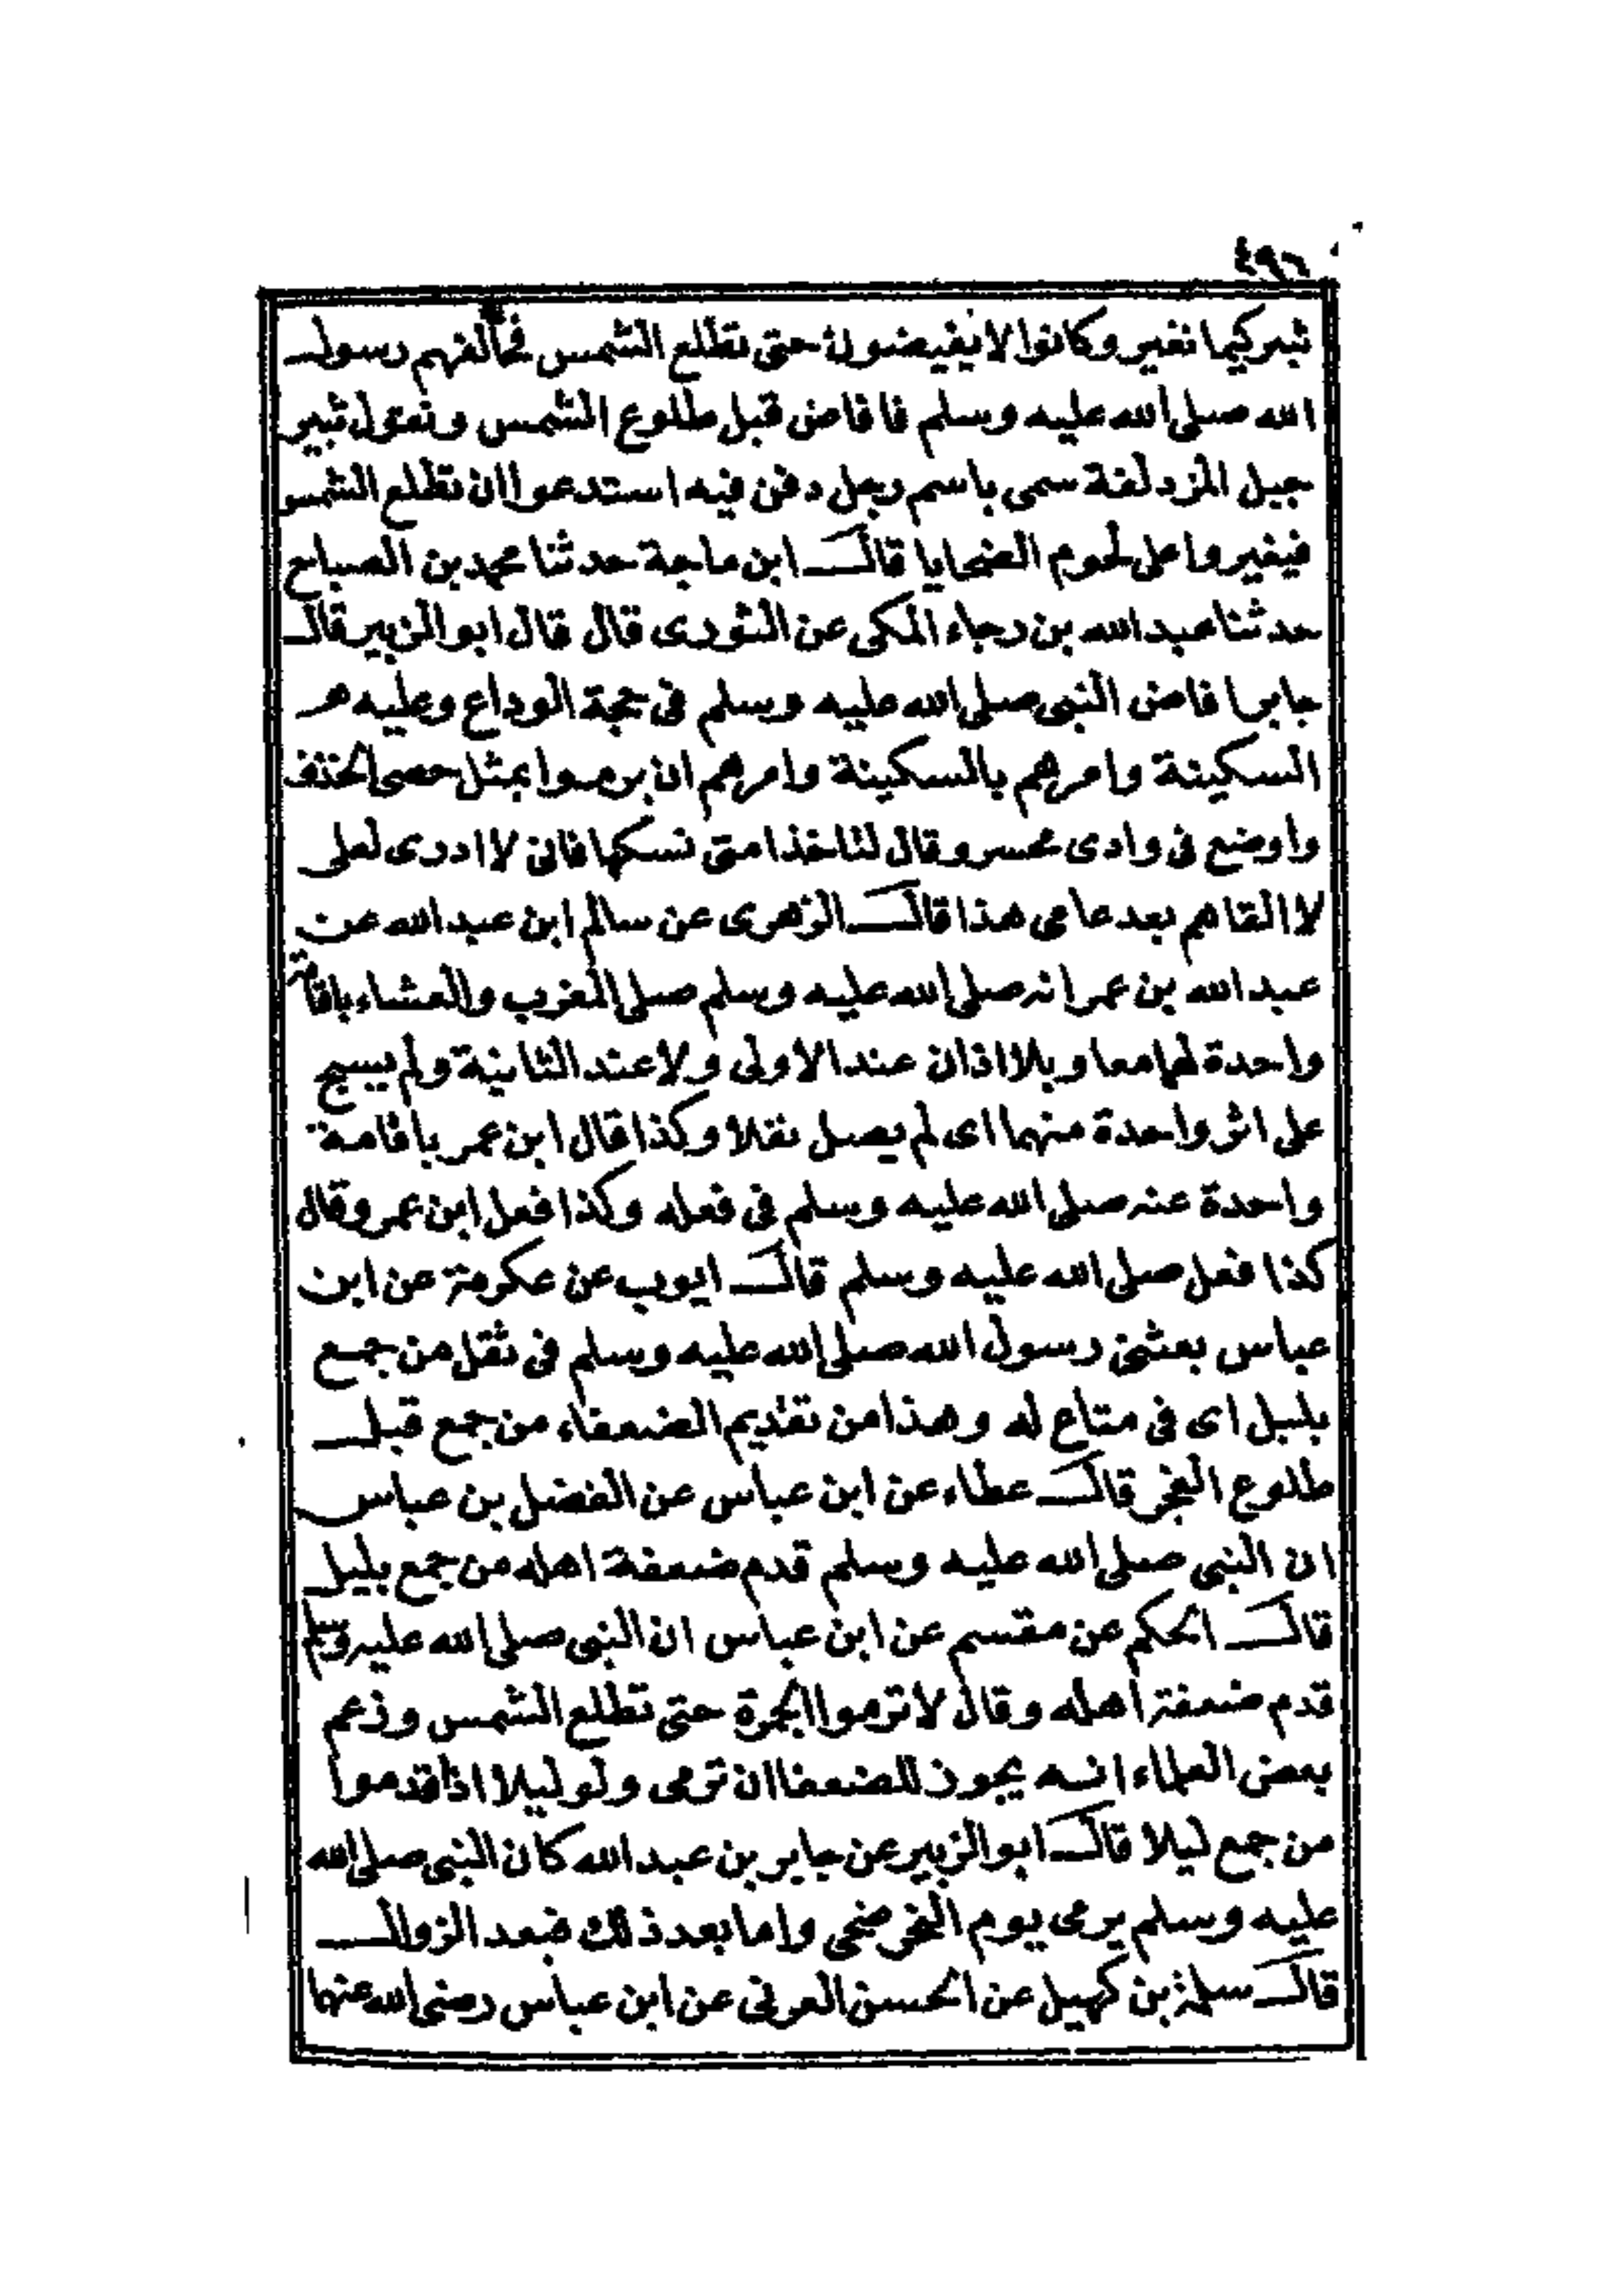 ٤٩٦
ثبير كيما نغير وكانوا لا يفيضون حتى تطلع الشمس فخالفهم رسول
الله صلى الله عليه وسلم فافاض قبل طلوع الشمس ونقول ثبير
جبل المزدلفة سمى باسم رجل دفن فيه استدعوا ان تطلع الشمس
فيغيروا على لحوم الضحايا قال ابن ماجة حدثنا محمد بن الصباح
حدثنا عبد الله بن رجاء المكى عن الثورى قال قال ابو الزبير قال
جابر افاض النبى صلى الله عليه وسلم فى حجة الوداع وعليهم
السكينة وامرهم بالسكينة وامرهم ان يرموا بمثل حصى الخذف
واوضع فى وادى محسر وقال لتاخذ امتى نسكها فانى لا ادرى لعلى
لا القاهم بعد عامى هذا قال الزهرى عن سالم ابن عبد الله عن
عبد الله بن عمر انه صلى الله عليه وسلم صلى المغرب والعشاء باقامة
واحدة لهما معا وبلا اذان عند الاولى ولا عند الثانية ولم يسبح
على اثر واحدة منهما اى لم يصل نفلا وكذا قال ابن عمر باقامة
واحدة عنه صلى الله عليه وسلم فى فعله وكذا فعل ابن عمر وقال
كذا فعل صلى الله عليه وسلم قال ايوب عن عكرمة عن ابن
عباس بعثنى رسول الله صلى الله عليه وسلم فى ثقل من جمع
بليل اى فى متاع له وهذا من تقديم الضعفاء من جمع قبل
طلوع الفجر قال عطاء عن ابن عباس عن الفضل بن عباس
ان النبى صلى الله عليه وسلم قدم ضعفة اهله من جمع بليل
قال الحكم عن مقسم عن ابن عباس ان النبى صلى الله عليه وسلم
قدم ضعفة اهله وقال لا ترموا الجمرة حتى تطلع الشمس وزعم
بعض العلماء انه يجوز للضعفا ان ترمى ولو ليلا اذا قدموا
من جمع ليلا قال ابو الزبير عن جابر بن عبد الله كان النبى صلى الله
عليه وسلم يرمى يوم النحر ضحى واما بعد ذلك فبعد الزوال
قال سلمة بن كهيل عن الحسن العرنى عن ابن عباس رضى الله عنهما